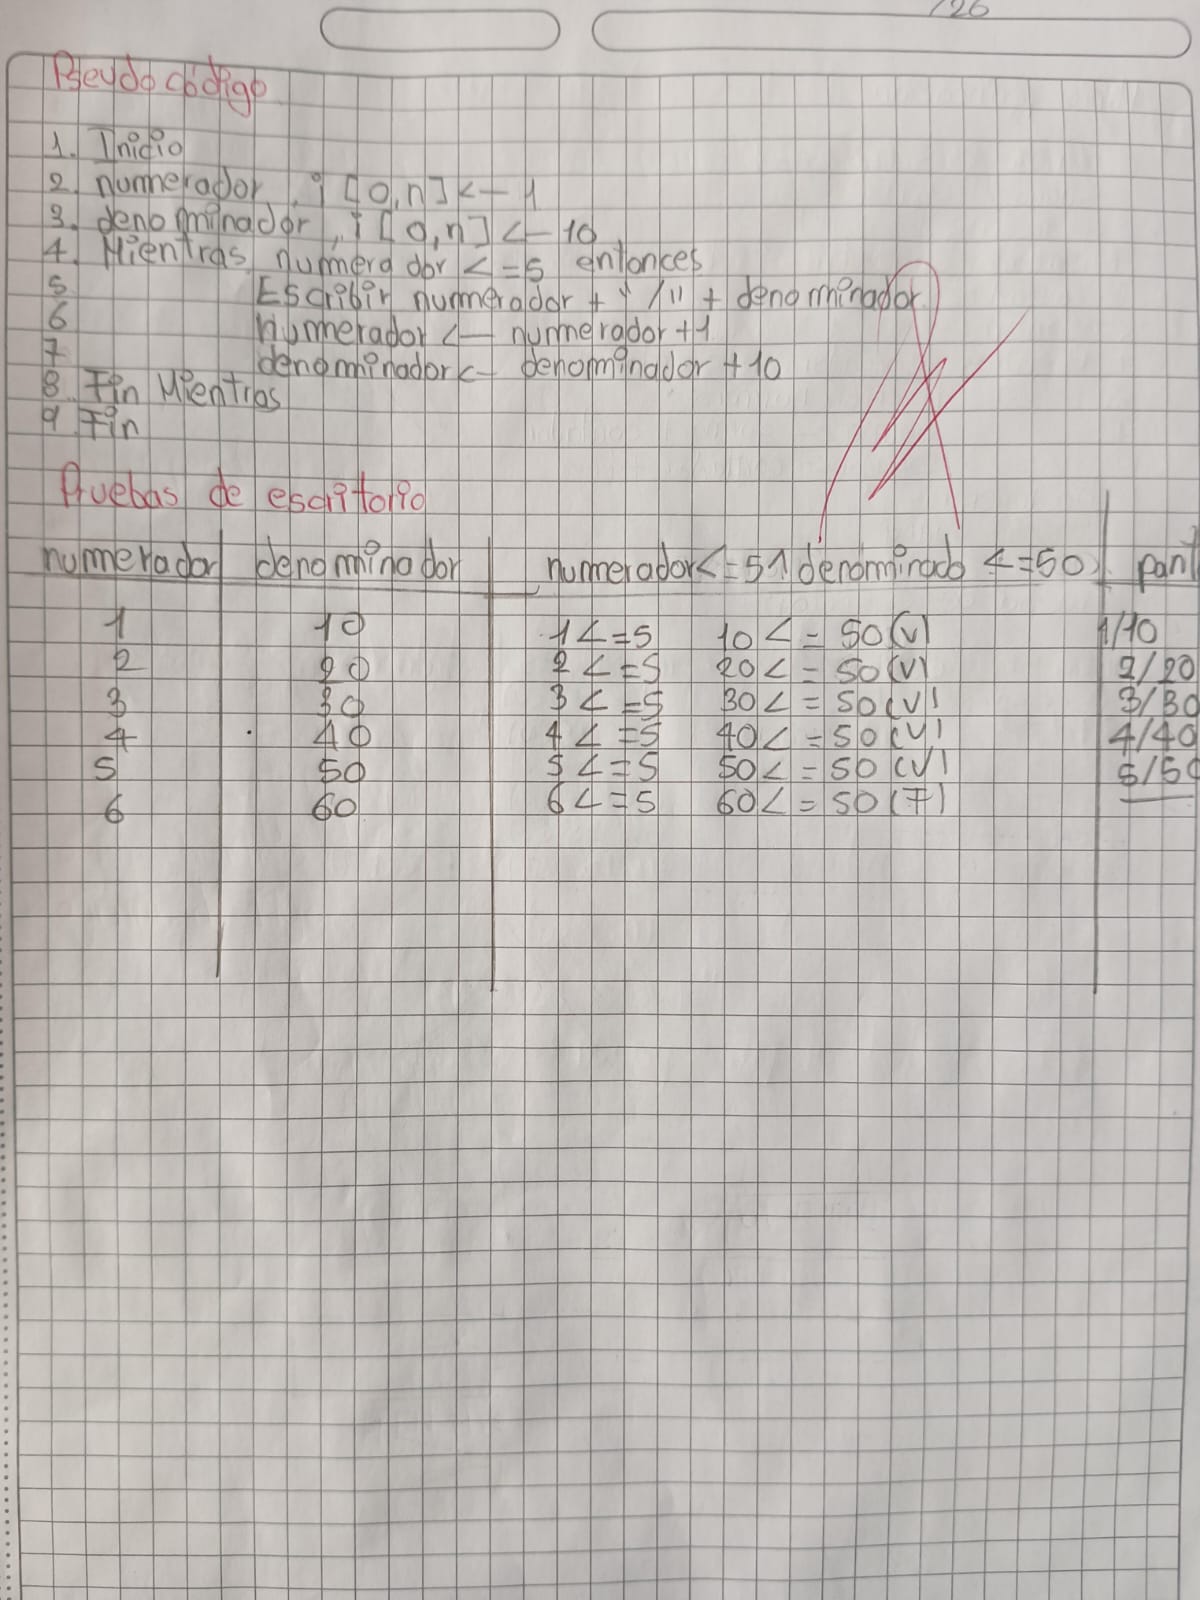 126
Pseudo código
1. Inicio
2. numerador, i [0,n] <- 1
3. denominador, i [0,n] <- 10
4. Mientras numerador <=5 entonces
5 Escribir numerador + "/" + denominador
6 numerador <- numerador+1
7 denominador <- denominador +10
8. Fin Mientras
9 Fin
Pruebas de escritorio
numerador denominador numerador<=5 ^ denominado <=50 pant
1 10 1<=5 10<=50(v) 1/10
2 20 2<=5 20<=50(v) 2/20
3 30 3<=5 30<=50(v) 3/30
4 40 4<=5 40<=50(v) 4/40
5 50 5<=5 50<=50(v) 5/50
6 60 6<=5 60<=50(F)